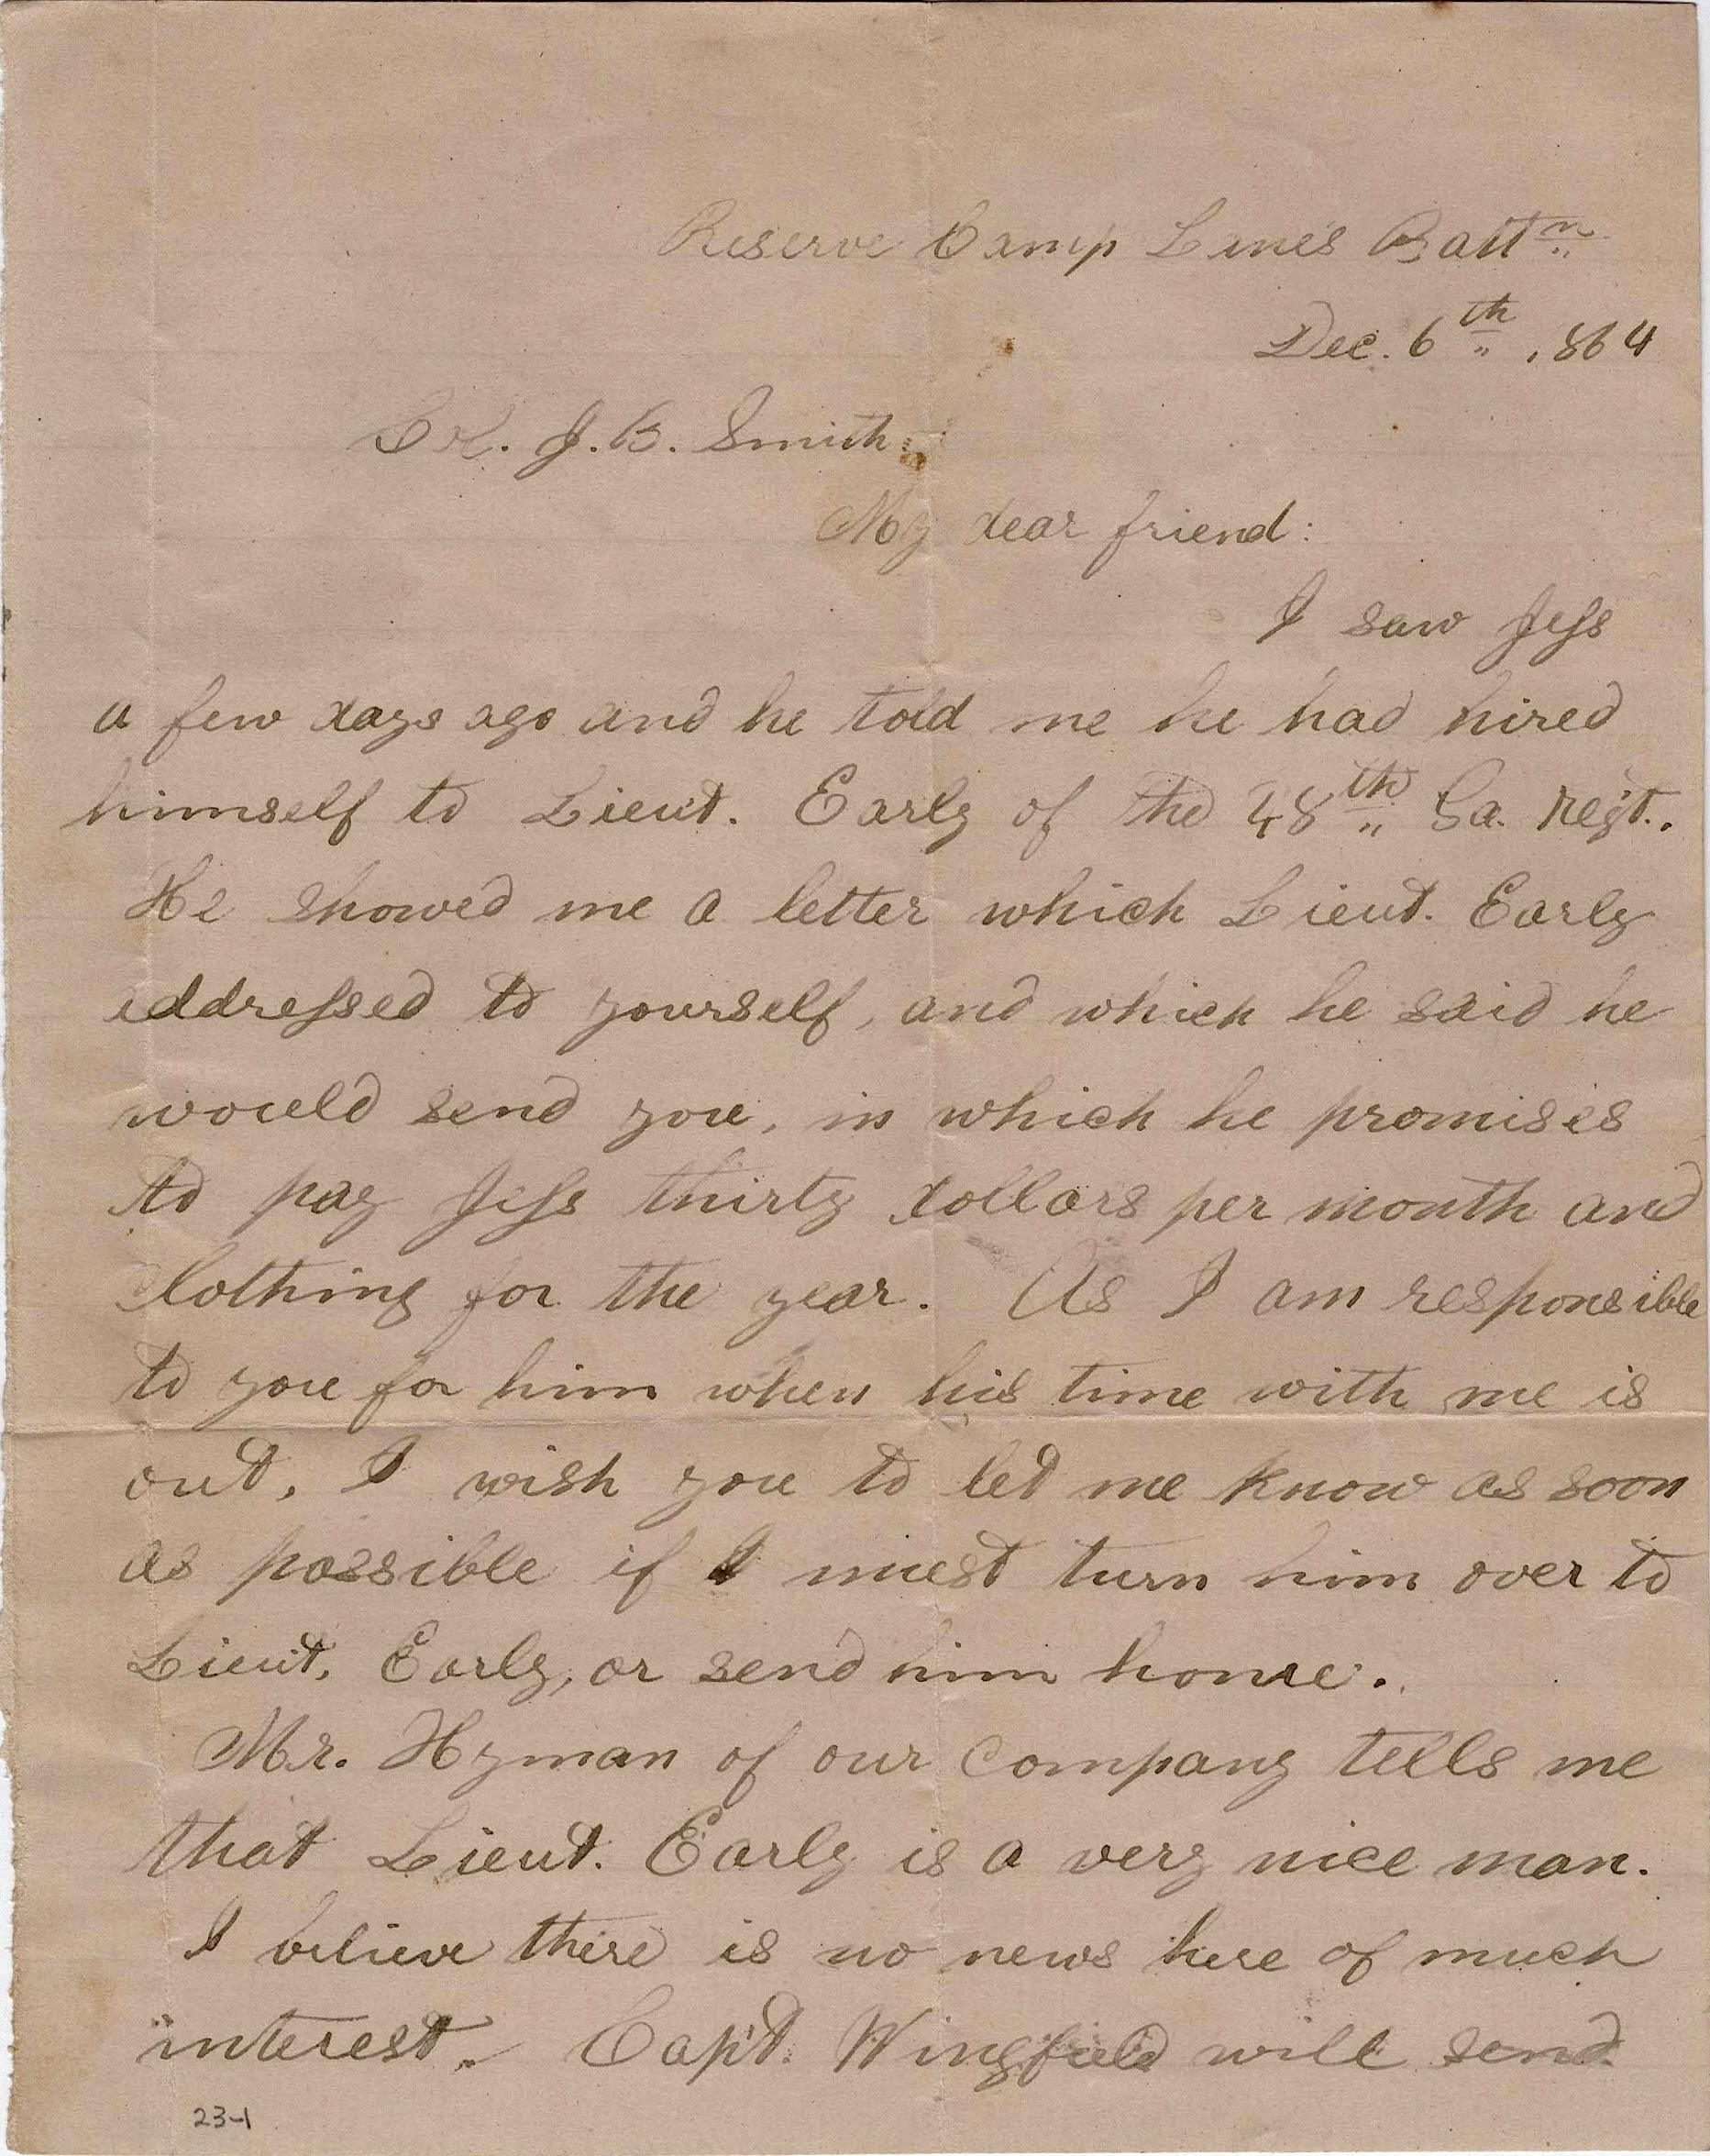 Reserve Camp Lane's Batt<sup>n</sup>
Dec. 6<sup>th</sup>, 1864
Col. J. B. Smith.
My dear friend:
I saw Jess
a few days ago and he told me he had hired
himself to Lieut. Early of the 48<sup>th</sup> Ga. Reg't.
He showed me a letter which Lieut. Early
addressed to yourself, and which he said he
would send you, in which he promises
to pay Jess thirty dollars per month and
clothing for the year. As I am responsible
to you for him when his time with me is
out, I wish you to let me know as soon
as possible if I must turn him over to
Lieut. Early, or send him home.
Mr. Hyman of our company tells me
that Lieut. Early is a very nice man.
I believe there is no news here of much
interest. Capt. Wingfield will send
23-1